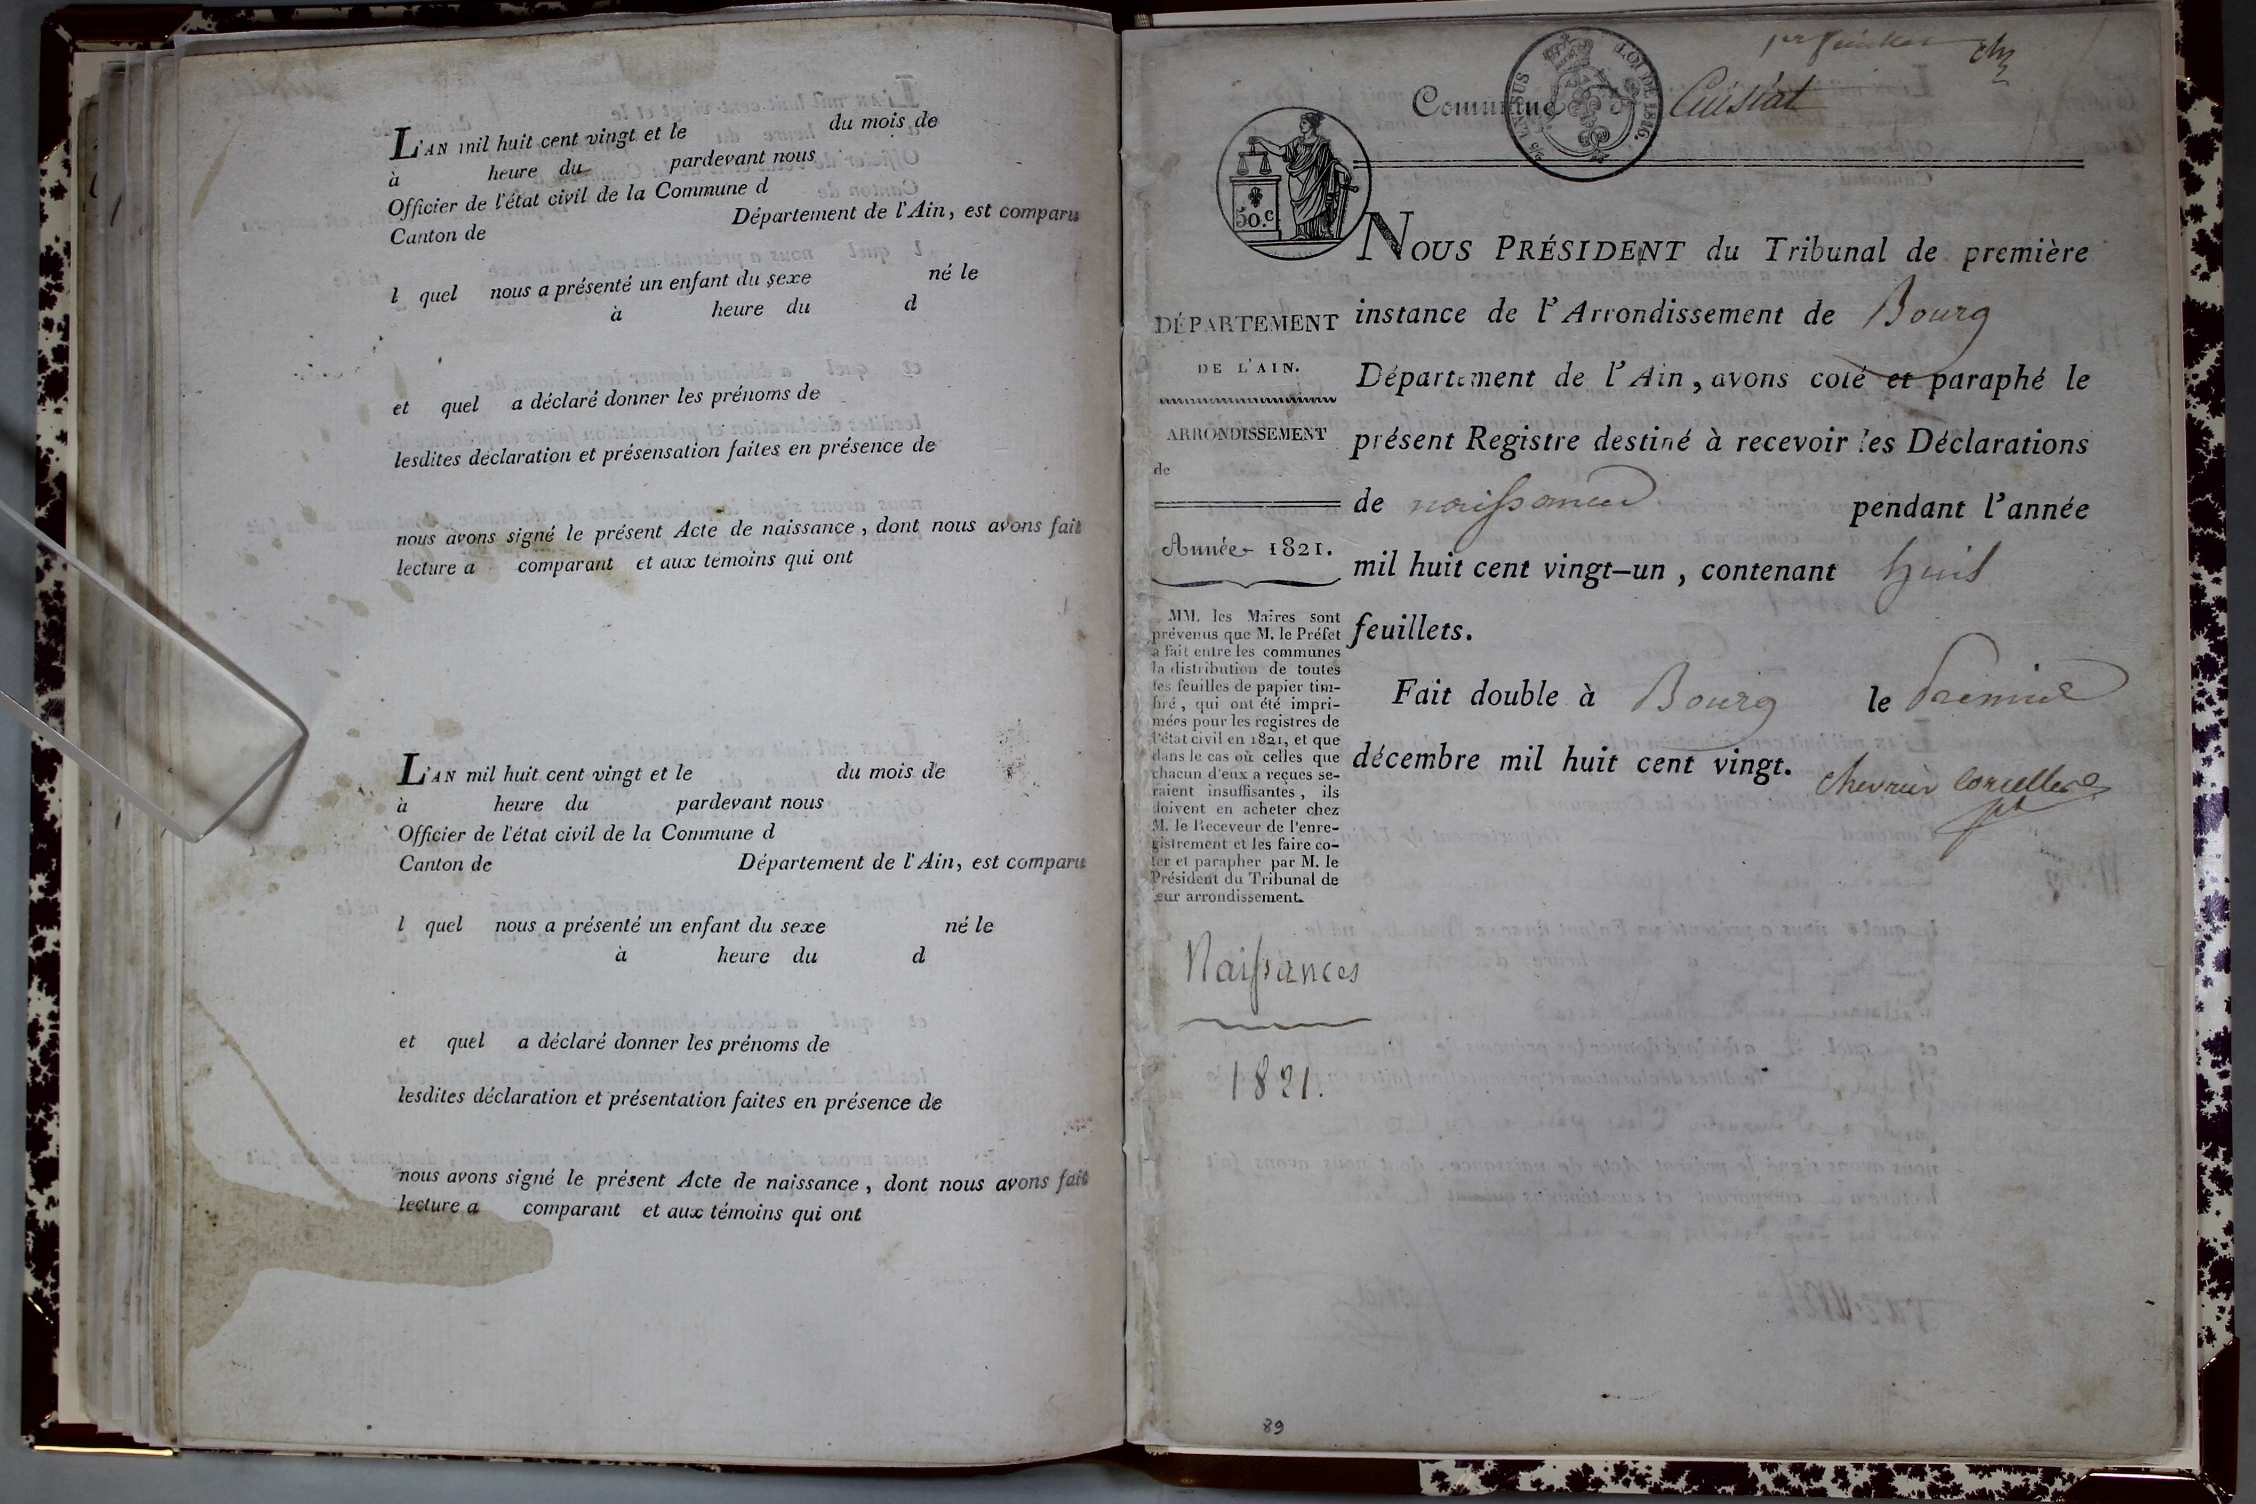 L'AN mil huit cent vingt et le du mois de
à heure du pardevant nous
Officier de l'état civil de la Commune d
Canton de Département de l'Ain, est comparu
l quel nous a présenté un enfant du sexe né le
à heure du d
et quel a déclaré donner les prénoms de
lesdites déclaration et présensation faites en présence de
nous avons signé le présent Acte de naissance, dont nous avons fait
lecture a comparant et aux témoins qui ont
L'AN mil huit cent vingt et le du mois de
à heure du pardevant nous
Officier de l'état civil de la Commune d
Canton de Département de l'Ain, est comparu
l quel nous a présenté un enfant du sexe né le
à heure du d
et quel a déclaré donner les prénoms de
lesdites déclaration et présentation faites en présence de
nous avons signé le présent Acte de naissance, dont nous avons fait
lecture a comparant et aux témoins qui ont
1er feuillet
Commune d Cuisiat
LOI DE 1816.
50.c
NOUS PRÉSIDENT du Tribunal de première
instance de l'Arrondissement de Bourg
Département de l'Ain, avons coté et paraphé le
présent Registre destiné à recevoir les Déclarations
de naissances pendant l'année
mil huit cent vingt-un, contenant huit
feuillets.
Fait double à Bourg le premier
décembre mil huit cent vingt.
chevrier corcelles
pt
DÉPARTEMENT
DE L'AIN.
ARRONDISSEMENT
de
Année 1821.
MM. les Maires sont
prévenus que M. le Préfet
a fait entre les communes
la distribution de toutes
les feuilles de papier tim-
bré, qui ont été impri-
mées pour les registres de
l'état civil en 1821, et que
dans le cas où celles que
chacun d'eux a reçues se-
raient insuffisantes, ils
doivent en acheter chez
M. le Receveur de l'enre-
gistrement et les faire co-
ter et parapher par M. le
Président du Tribunal de
leur arrondissement.
Naissances
1821.
89